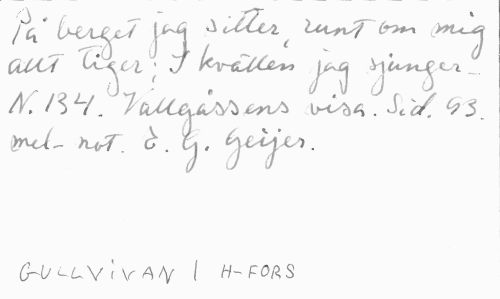 På berget jag sitter, runt om mig
allt tiger; I kvällen jag sjunger -
N. 134. Vallgåssens visa. Sid. 93.
mel- not. E. G. Geijer.
GULLVIVAN | H-FORS